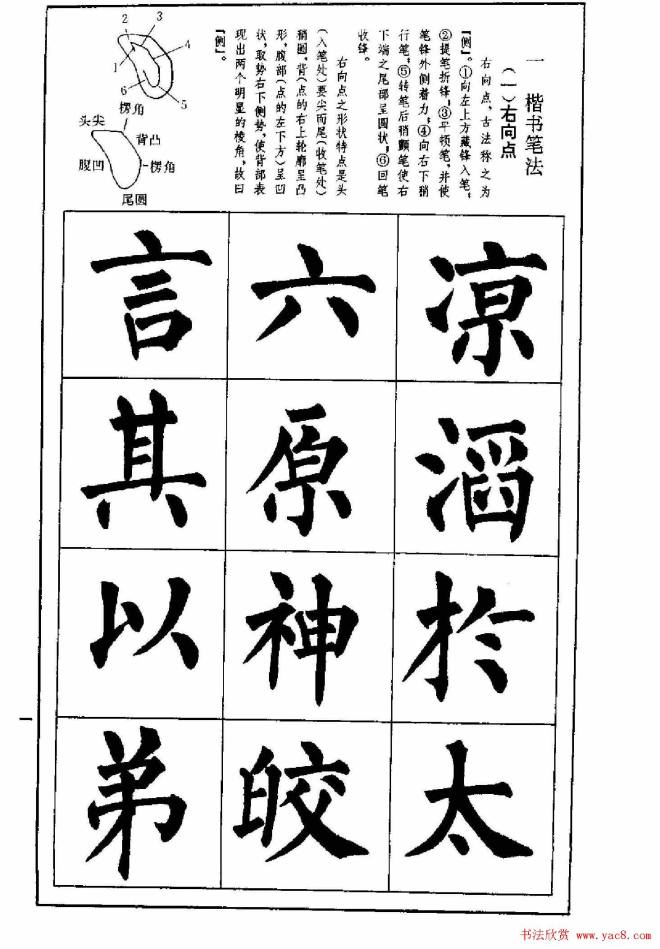 一 楷书笔法
（一）右向点
右向点、古法称之为
『侧』。①向左上方藏锋入笔；
②提笔折锋；③平顿笔，并使
笔锋外侧着力；④向右下稍
行笔；⑤转笔后稍颤笔使右
下端之尾部呈圆状；⑥回笔
收锋。
右向点之形状特点是头
（入笔处）要尖而尾（收笔处）
稍圆，背（点的右上轮廓呈凸
形，腹部（点的左下方）呈凹
状，取势右下侧势，使背部表
现出两个明显的棱角，故曰
『侧』。
2
3
4
1
6
5
楞角
头尖
背凸
腹凹
楞角
尾圆
凉
滔
於
太
六
原
神
皎
言
其
以
弟
一
书法欣赏 www.yac8.com